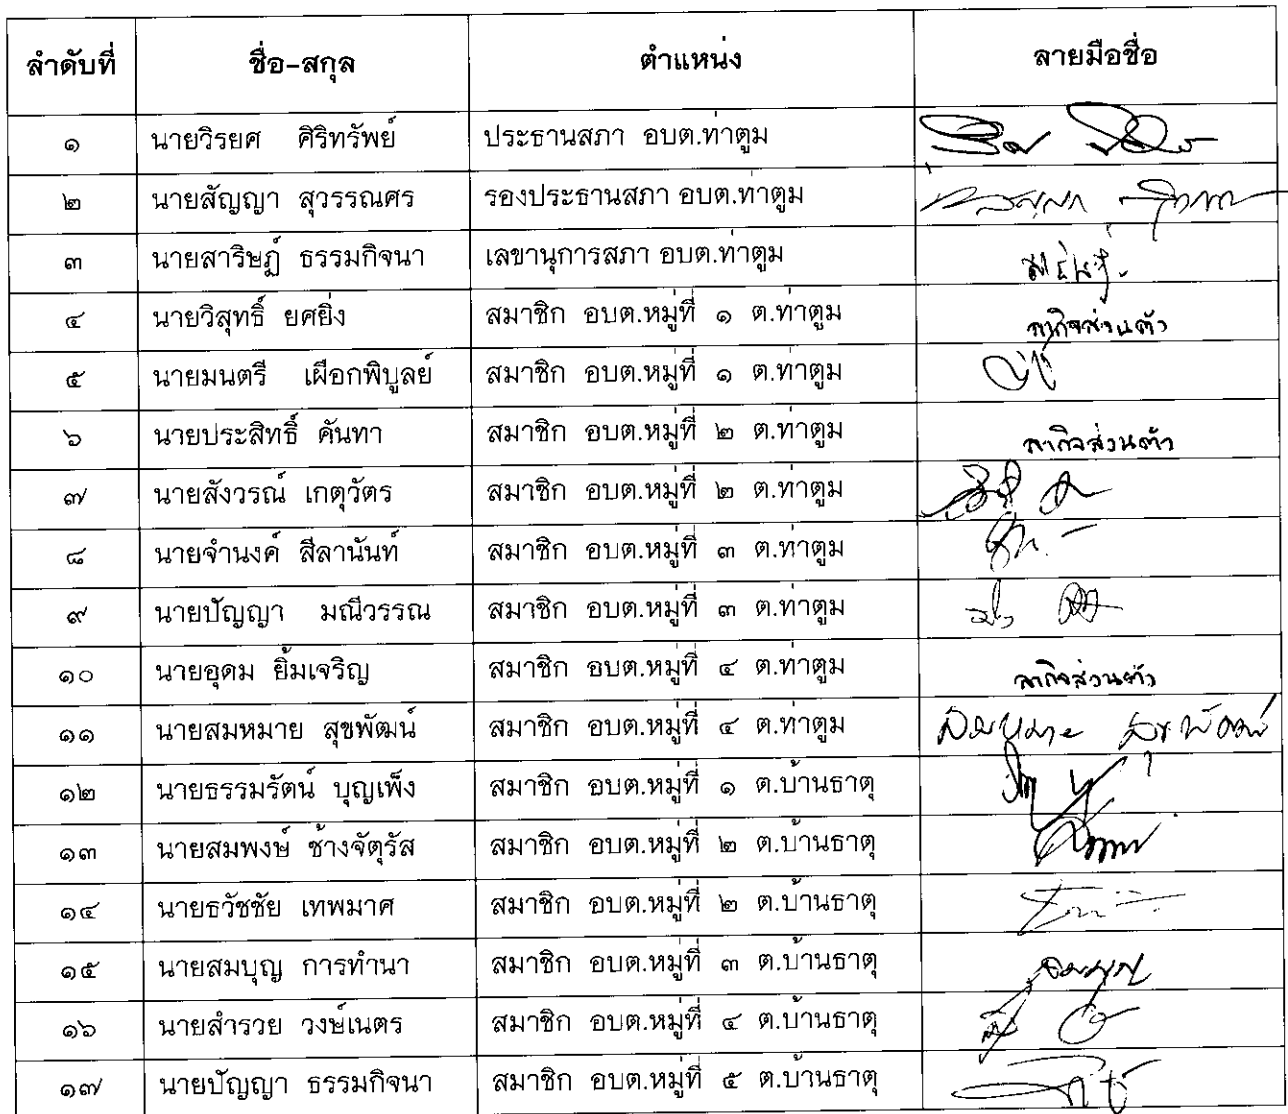 ลำดับที่ ชื่อ-สกุล ตำแหน่ง ลายมือชื่อ
๑ นายวิรยศ ศิริทรัพย์ ประธานสภา อบต.ท่าตูม
๒ นายสัญญา สุวรรณศร รองประธานสภา อบต.ท่าตูม
๓ นายสาริษฏ์ ธรรมกิจนา เลขานุการสภา อบต.ท่าตูม
๔ นายวิสุทธิ์ ยศยิ่ง สมาชิก อบต.หมู่ที่ ๑ ต.ท่าตูม ลากิจส่วนตัว
๕ นายมนตรี เผือกพิบูลย์ สมาชิก อบต.หมู่ที่ ๑ ต.ท่าตูม
๖ นายประสิทธิ์ คันทา สมาชิก อบต.หมู่ที่ ๒ ต.ท่าตูม ลากิจส่วนตัว
๗ นายสังวรณ์ เกตุวัตร สมาชิก อบต.หมู่ที่ ๒ ต.ท่าตูม
๘ นายจำนงค์ สีลานันท์ สมาชิก อบต.หมู่ที่ ๓ ต.ท่าตูม
๙ นายปัญญา มณีวรรณ สมาชิก อบต.หมู่ที่ ๓ ต.ท่าตูม
๑๐ นายอุดม ยิ้มเจริญ สมาชิก อบต.หมู่ที่ ๔ ต.ท่าตูม ลากิจส่วนตัว
๑๑ นายสมหมาย สุขพัฒน์ สมาชิก อบต.หมู่ที่ ๔ ต.ท่าตูม สมหมาย สุขพัฒน์
๑๒ นายธรรมรัตน์ บุญเพ็ง สมาชิก อบต.หมู่ที่ ๑ ต.บ้านธาตุ
๑๓ นายสมพงษ์ ช้างจัตุรัส สมาชิก อบต.หมู่ที่ ๒ ต.บ้านธาตุ
๑๔ นายธวัชชัย เทพมาศ สมาชิก อบต.หมู่ที่ ๒ ต.บ้านธาตุ
๑๕ นายสมบุญ การทำนา สมาชิก อบต.หมู่ที่ ๓ ต.บ้านธาตุ สมบุญ
๑๖ นายสำรวย วงษ์เนตร สมาชิก อบต.หมู่ที่ ๔ ต.บ้านธาตุ
๑๗ นายปัญญา ธรรมกิจนา สมาชิก อบต.หมู่ที่ ๕ ต.บ้านธาตุ